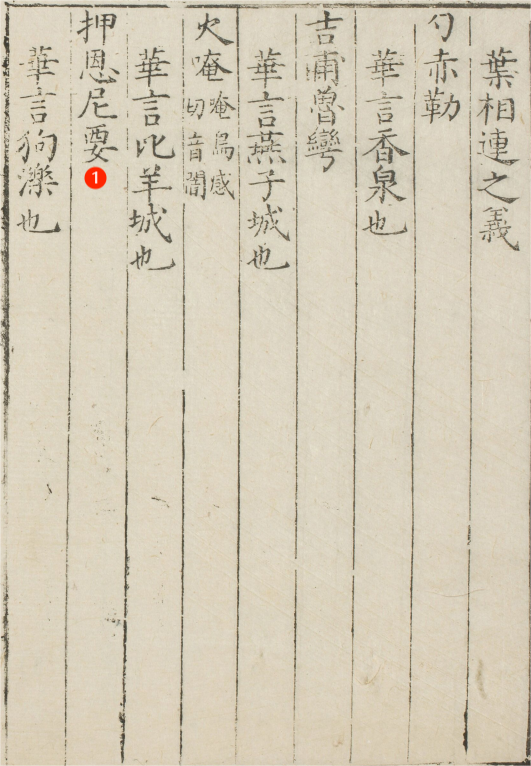 葉相連之義
勺赤勒
華言香泉也
吉甫魯彎
華言燕子城也
火唵唵烏感切音闇
華言北羊城也
押恩尼要 1
華言狗濼也